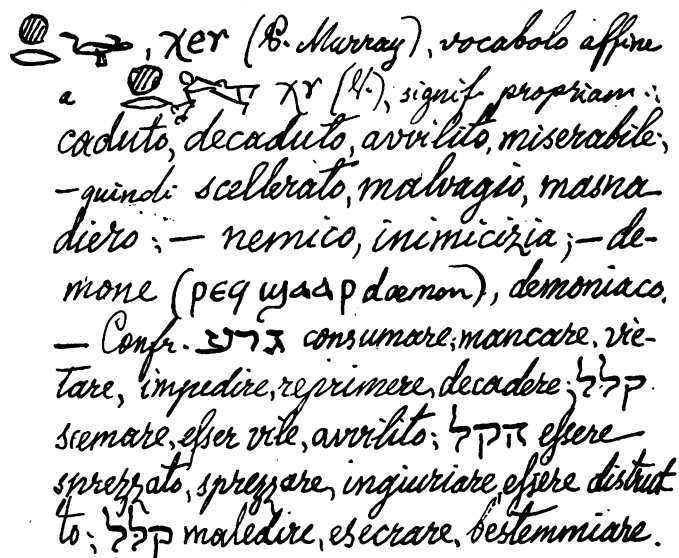 𓐍𓂋𓅪, χer (P. Murray), vocabolo affine
a 𓐍𓂋𓀒 χr (V.), signif. propriam.:
caduto, decaduto, avvilito, miserabile;
— quindi scellerato, malvagio, masna
diero; — nemico, inimicizia; — de-
mone (ⲣⲉϥϣⲁⲁⲣ dæmon), demoniaco.
— Confr. גרע consumare, mancare, vie-
tare, impedire, reprimere, decadere; קלל
scemare, eſser vile, avvilito; הקל eſsere
sprezzato, sprezzare, ingiuriare, eſsere distrut
to; קלל maledire, esecrare, bestemmiare.